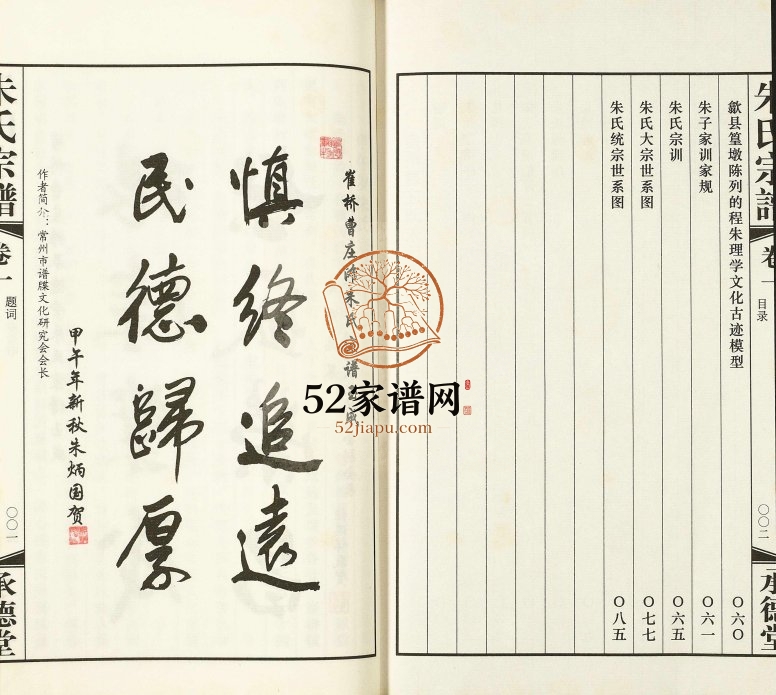 朱氏宗谱
卷一
目录
〇〇二
承德堂
歙县篁墩陈列的程朱理学文化古迹模型 〇六〇
朱子家训家规 〇六一
朱氏宗训 〇六五
朱氏大宗世系图 〇七七
朱氏统宗世系图 〇八五
崔桥曹庄
朱氏
谱
慎终追远
民德歸厚
甲午年新秋朱炳国贺
作者简介：常州市谱牒文化研究会会长
朱氏宗谱
卷一
题词
〇〇一
承德堂
52家谱网
52jiapu.com